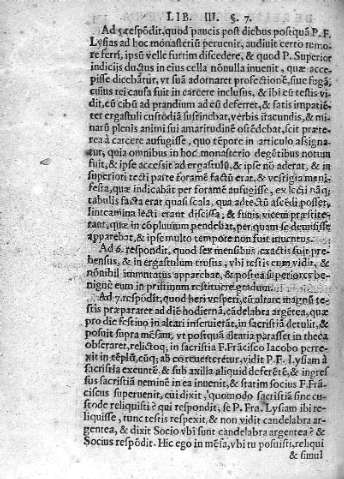 LIB. III. §. 7.
Ad 5. respõdit, quod paucis post diebus posiquã P. F.
Lysias ad hoc monasteriũ peruenit, audiuit certo rumo-
re ferri, ipsũ velle furtim discedere, & quod P. Superior
indicijs ductus in eius cella nõnulla inuenit, quæ acce-
pisse dicebatur, vt suã adornaret profectionẽ, siue fugã,
cuius rei causa fuit in carcere inclusus, & ibi eũ testis vi-
dit, eũ cibũ ad prandium ad eũ deferret, & satis impatiẽ-
ter ergastuli custodiã sustinebat, verbis iracundis, & mi-
narũ plenis animi sui amaritudinẽ ostẽdebat, scit præte-
rea à carcere aufugisse, quo tẽpore in articulo assigna-
tur, quia omnibus in hoc monasterio degẽtibus notum
fuit, & ipse accessit ad ergastulũ, & ipse nõ aderat, & in
superiori tecti parte foramẽ factũ erat, & vestigia mani-
festa, quæ indicabãt per foramẽ aufugisse, ex lecti nãq;
tabulis facta erat quasi scala, qua ad tectũ ascẽdi posset,
linteamina lecti erant discissa, & funis vicem præstite-
rant, quæ in compluuium pendebat, per quam se demisisse
apparebat, & ipse multo tempore non fuit inuentus.
Ad 6. respondit, quod sex mensibus exactis fuit pre-
hensus, & in ergastulum trusus, vbi testis eum vidit, &
nõnihil immutatus apparebat, & postea superiores be-
nignè eum in pristinum restituere gradum.
Ad 7. respõdit, quod heri vesperi, eũ altare magnũ te-
stis præpararet ad diẽ hodiernã, cãdelabra argẽtea, quæ
pro die festino in altari inseruierãt, in sacristiã detulit, &
posuit supra mẽsam, vt postquã ditaria parasset in theca
obseraret, relictoq; in sacristia F. Frãcisco Iacobo perre-
xit in tẽplũ, cũq; ab eo reuerteretur, vidit P. F. Lysiam à
sacristia exeuntẽ, & sub axilla aliquid deferẽtẽ, & ingres-
sus sacristiã neminẽ in ea inuenit, & statim socius F. Frã-
ciscus superuenit, cui dixit, quomodo sacristiã sine cu-
stode reliquisti? qui respondit, se P. Fra. Lysiam ibi re-
liquisse, tunc testis respexit, & non vidit candelabra ar-
gentea, & dixit Socio vbi sunt candelabra argentea? &
Socius respõdit. Hic ego in mẽsa, vbi tu posuisti, reliqui
& simul